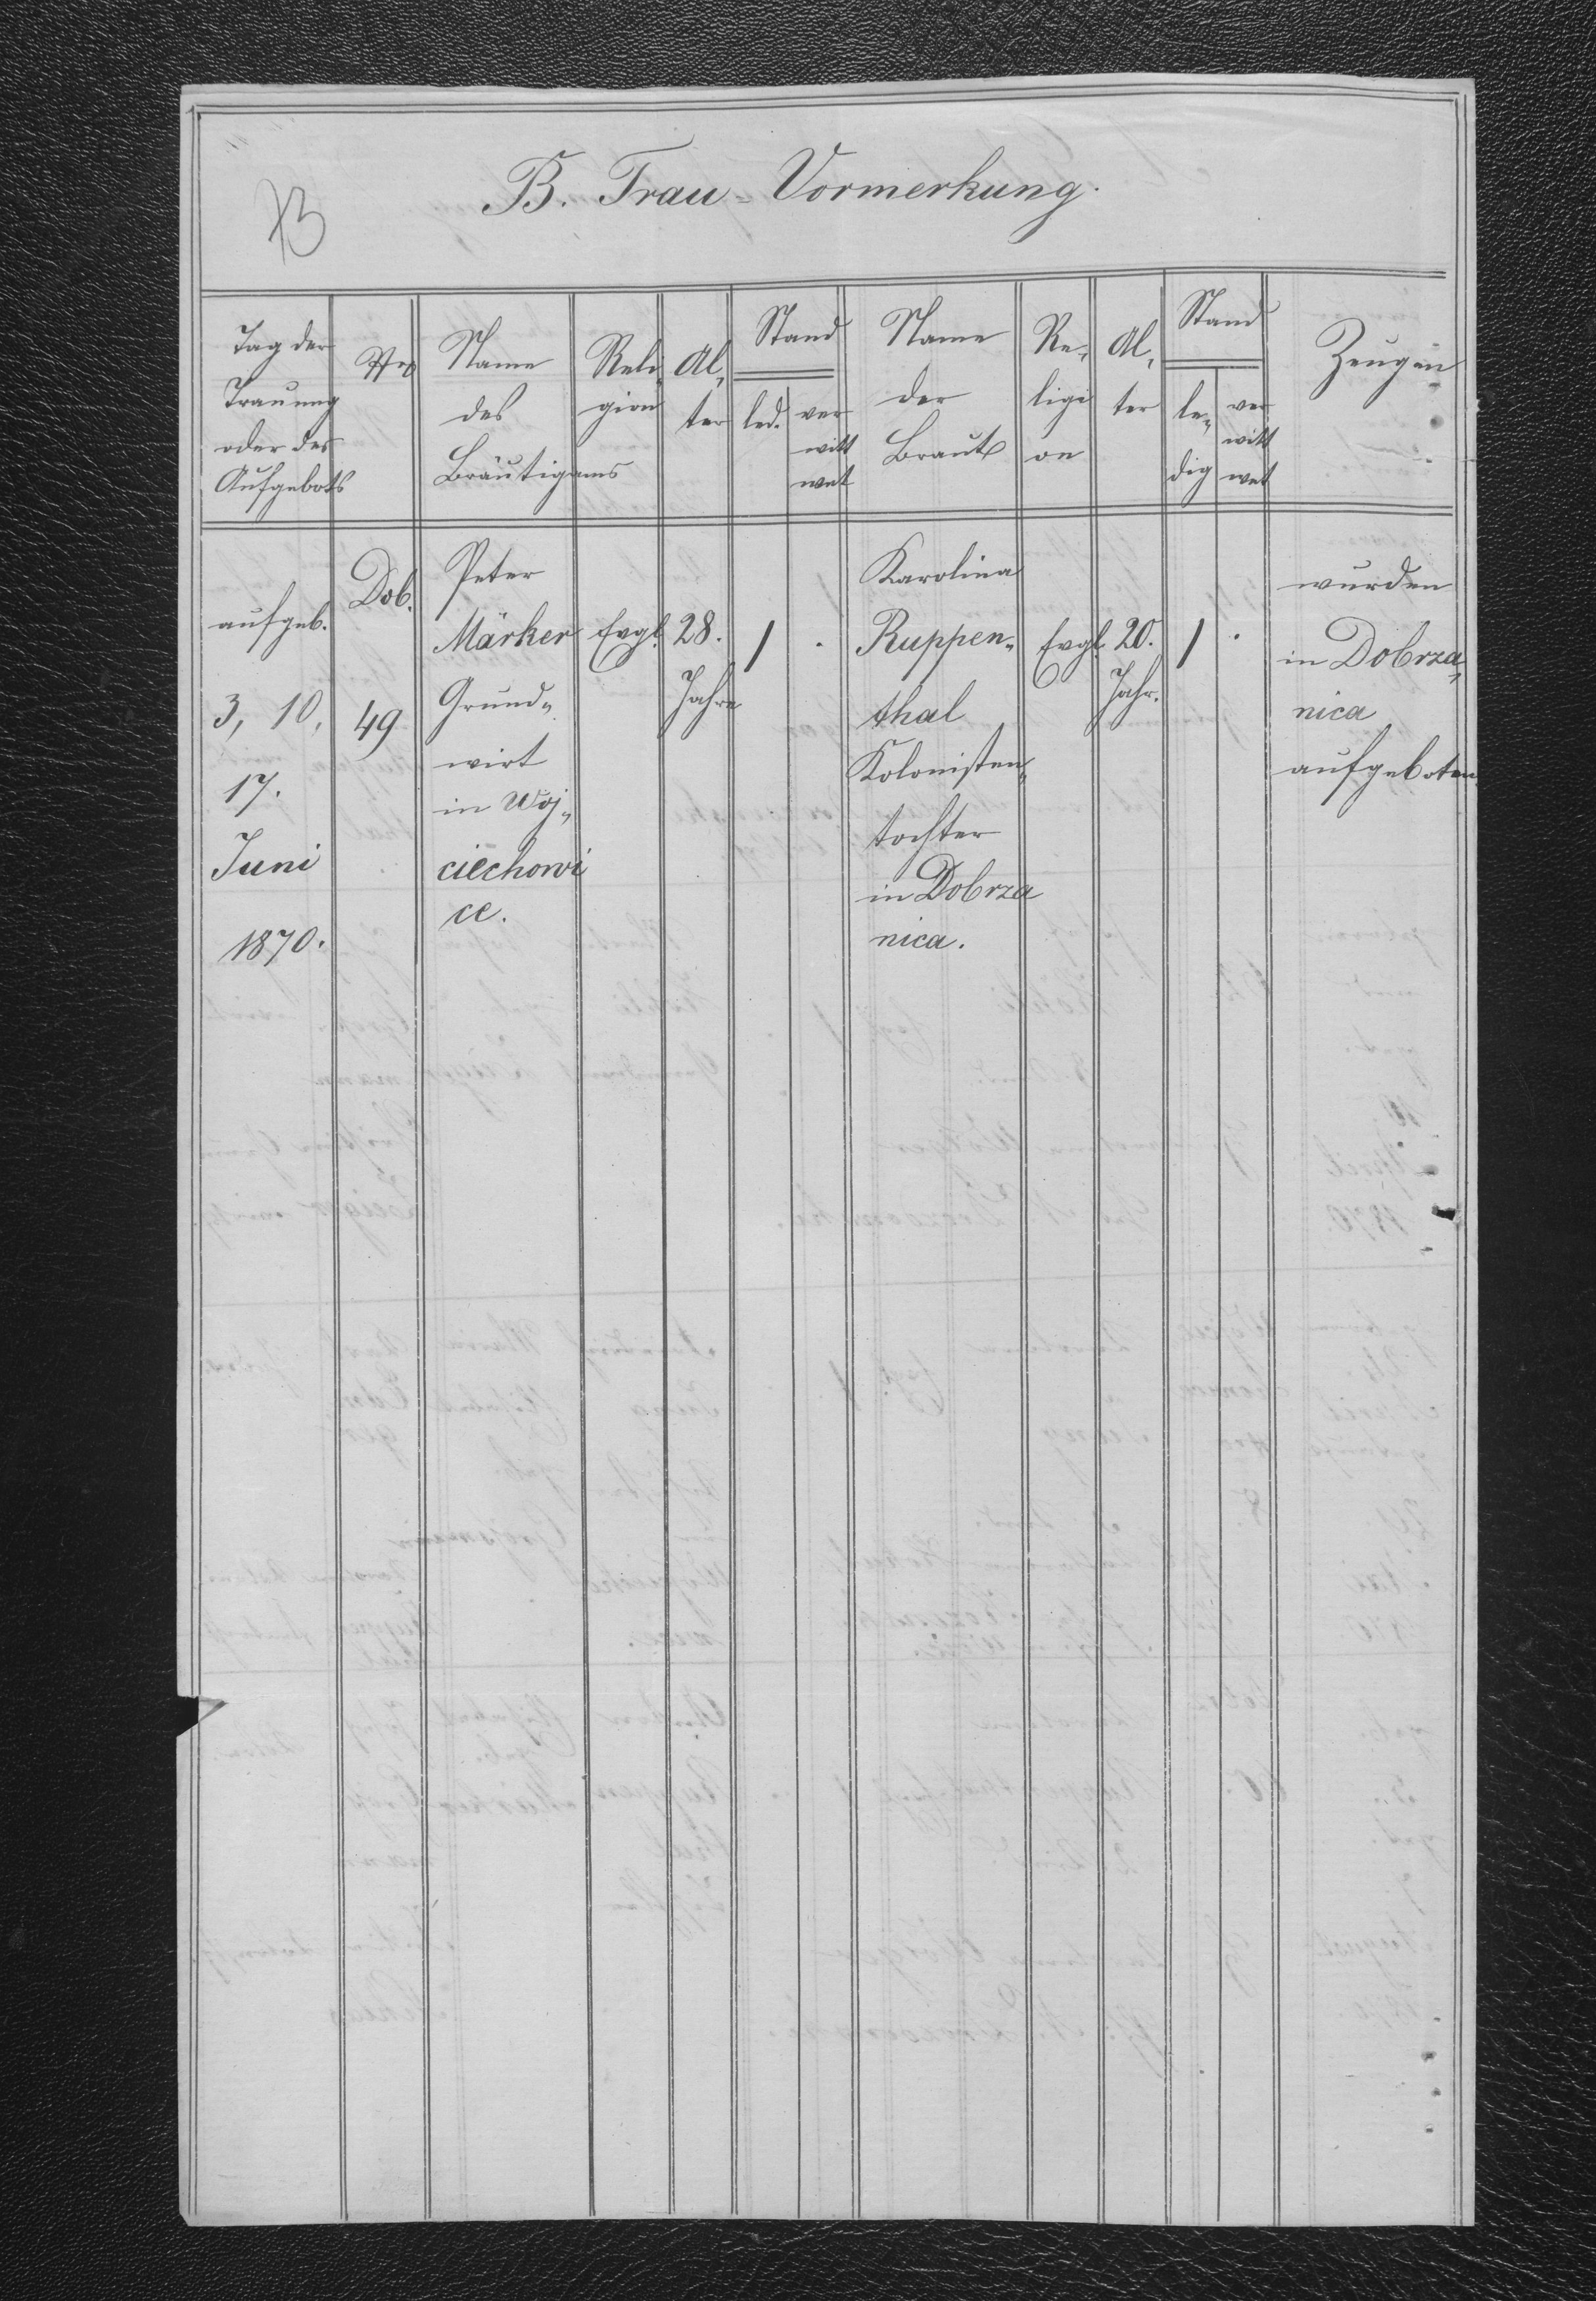 B. Trau-Vormerkung.
Tag der
Trauung
oder des
Aufgebots
Nro
Name
des
Bräutigams
Reli-
gion
Al-
ter
Stand
led.
ver
witt
wet
Name
der
Braut
Re-
ligi
on
Al-
ter
Stand
le-
dig
ver
witt
wet
Zeugen
aufgeb.
3, 10,
17.
Juni
1870.
Dob.
49
Peter
Märker
Grund-
wirt
in Woj-
ciechowi
ce.
Evgl.
28.
Jahre
1
.
Karolina
Ruppen-
thal
Kolonisten-
tochter
in Dobrza
nica.
Evgl.
20.
Jahr.
1
.
wurden
in Dobrza-
nica
aufgeboten